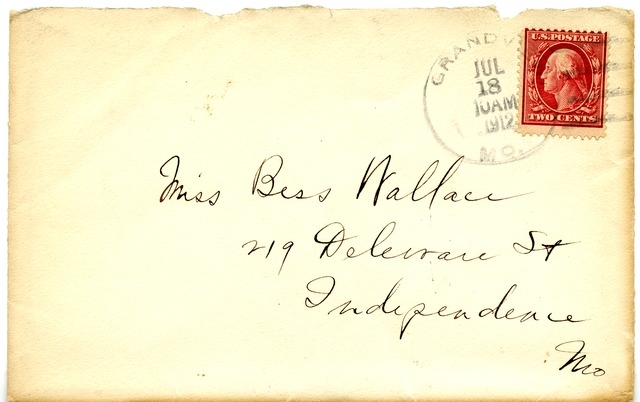 GRANDV
JUL
18
10AM
1912
MO.
U.S. POSTAGE
TWO CENTS
Miss Bess Wallace
219 Deleware St
Independence
Mo